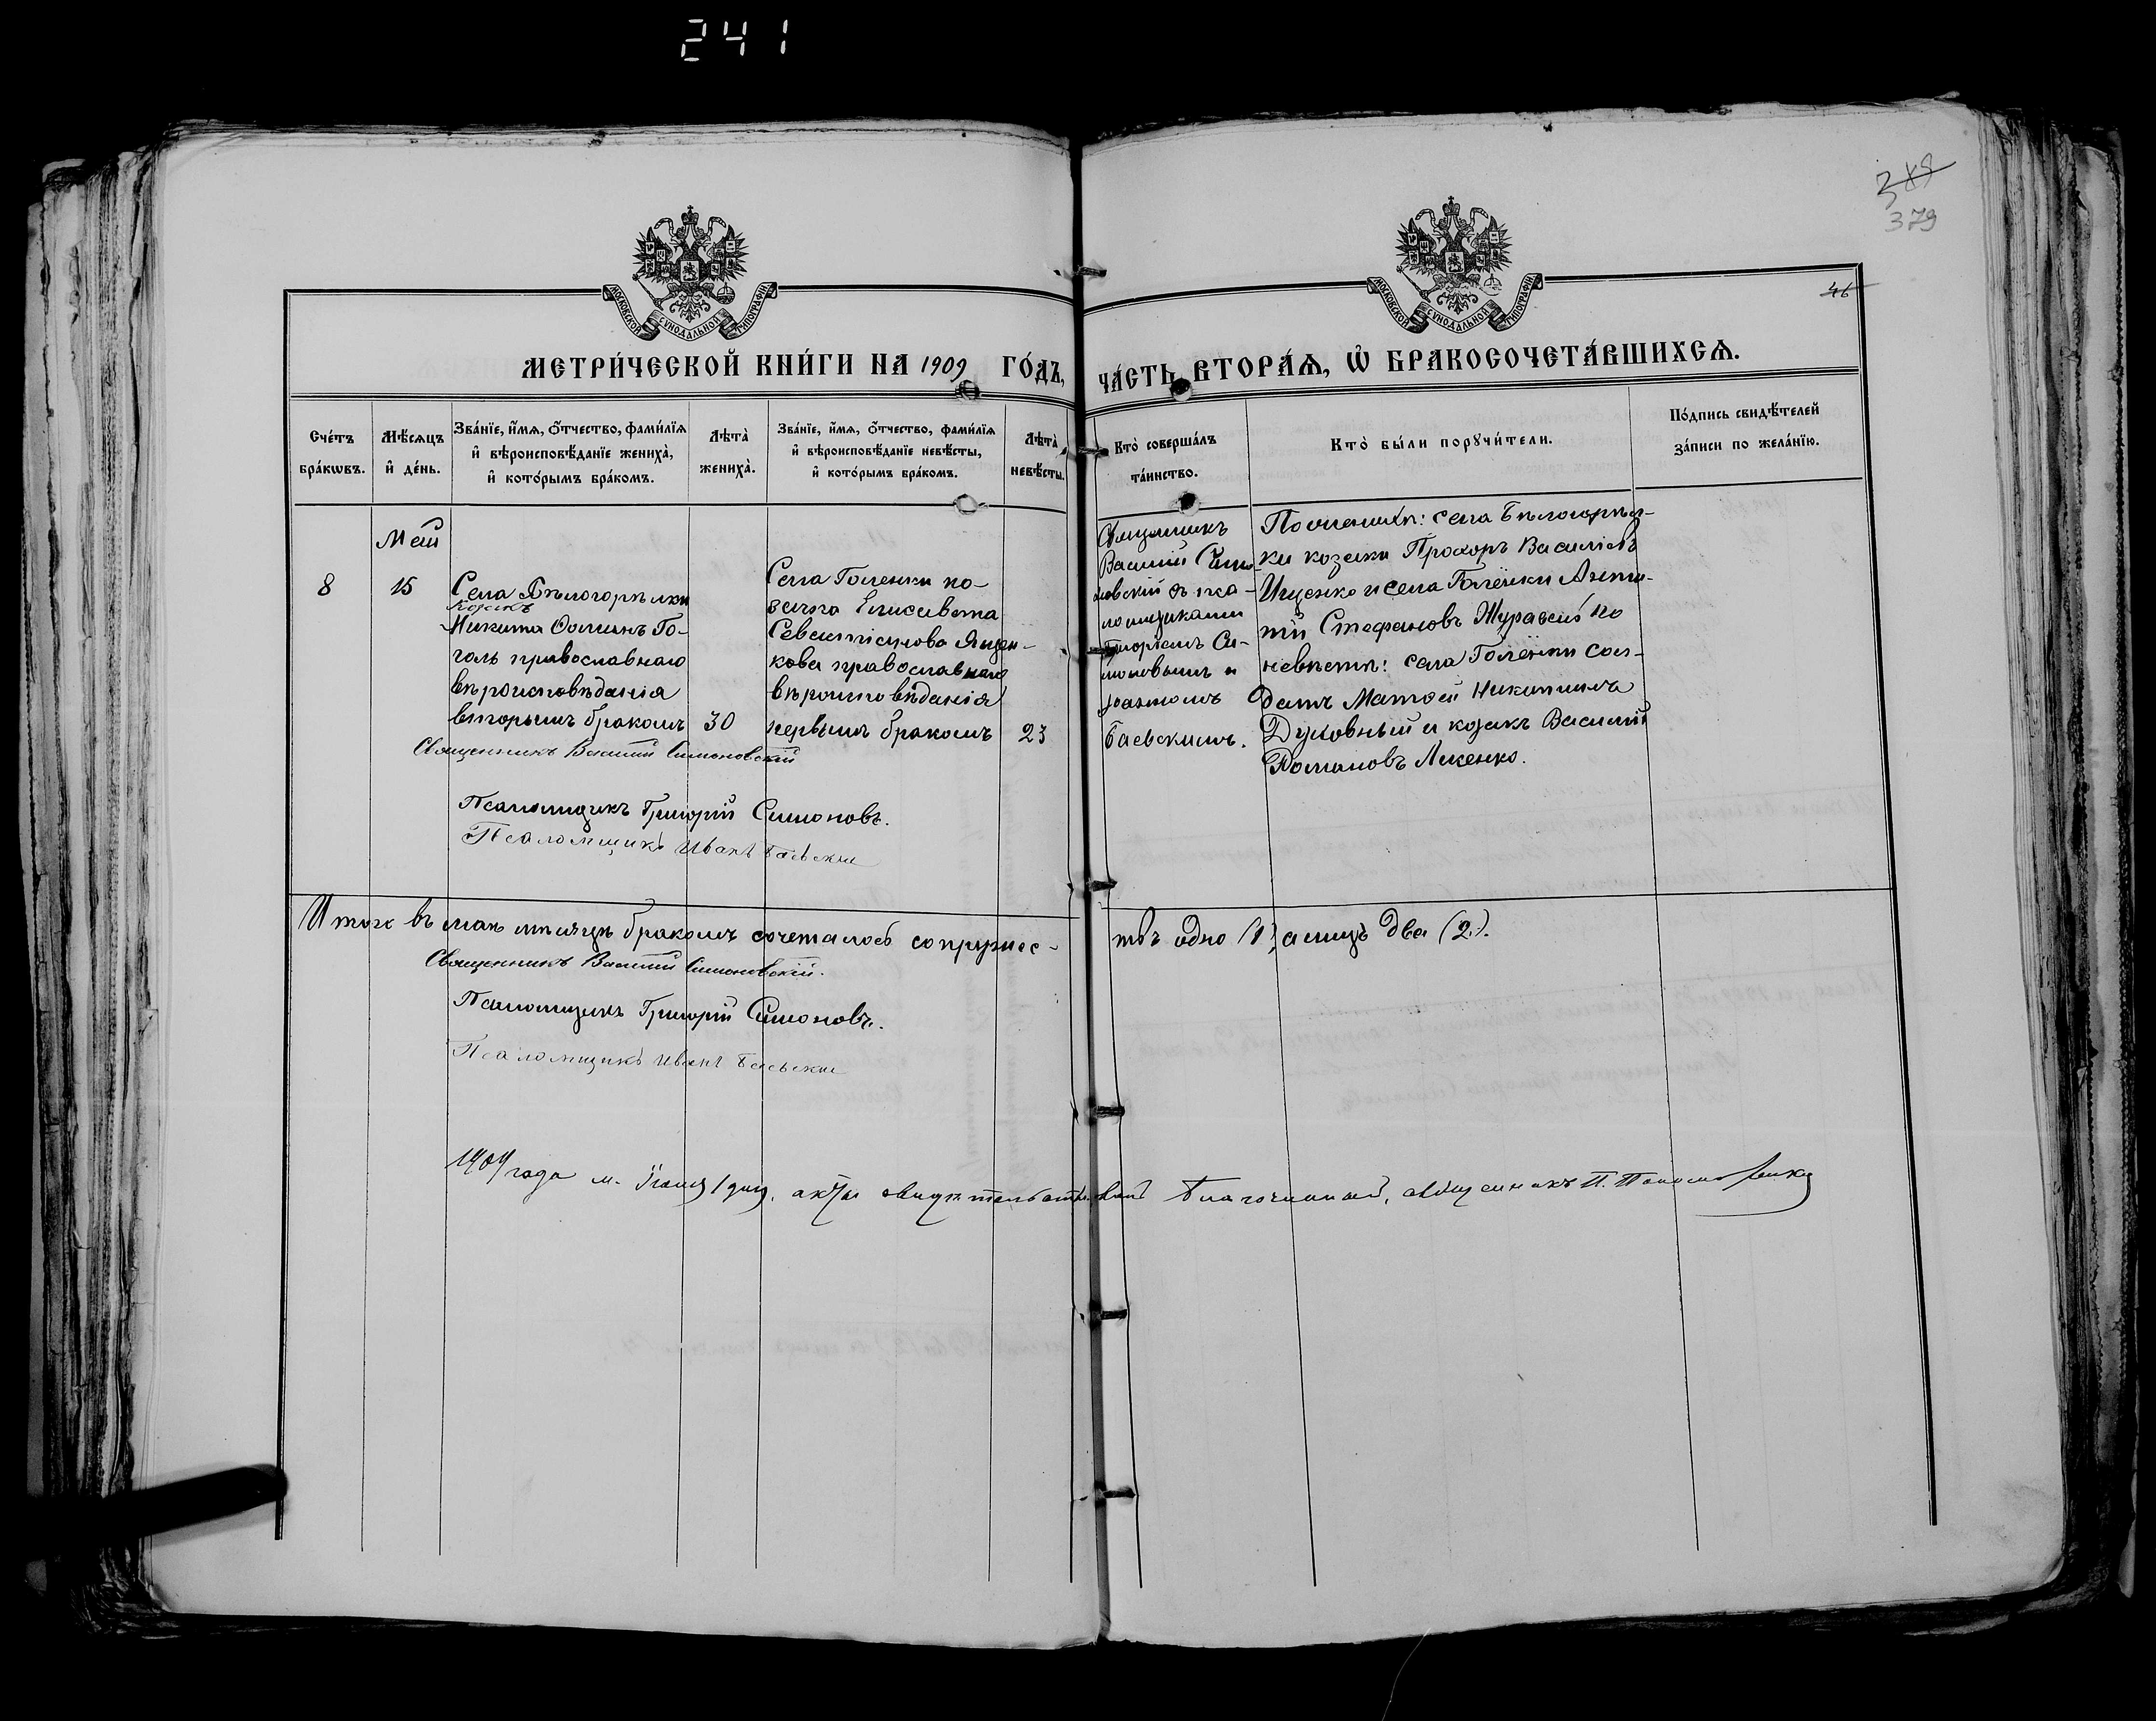 241
349
379
46
МОСКОВСКОЙ СѴНОДАЛЬНОЙ ТИПОГРАФІИ
МОСКОВСКОЙ СѴНОДАЛЬНОЙ ТИПОГРАФІИ
МЕТРИ́ЧЕСКОЙ КНИ́ГИ НА 1909 ГО́ДЪ, ЧА́СТЬ ВТОРА́Ѧ, Ѡ҆ БРАКОСОЧЕТА́ВШИХСѦ.
Сче́тъ
бра́кѡвъ.
Мѣ́сѧцъ
и҆ де́нь.
Зва́нїе, и҆́мѧ, ѻ҆́тчество, фами́лїѧ
и҆ вѣроисповѣ́данїе жениха̀,
и҆ кото́рымъ бра́комъ.
Лѣта̀
жениха̀.
Зва́нїе, и҆́мѧ, ѻ҆́тчество, фами́лїѧ
и҆ вѣроисповѣ́данїе невѣ́сты,
и҆ кото́рымъ бра́комъ.
Лѣта̀
невѣ́сты.
Кто̀ соверша́лъ
та́инство.
Кто̀ бы́ли порꙋчи́тели.
По́дпись свидѣ́телей
за́писи по жела́нїю.
Май
8
15
Села Бѣлогорѣлки
козакъ
Никита Ѳоминъ Го-
голь православнаго
вѣроисповѣданія
вторымъ бракомъ
30
Села Голенки ко-
зачка Елисавета
Севастіанова Яцен-
кова православнаго
вѣроисповѣданія
первымъ бракомъ
23
Священникъ
Василій Симо-
новскій съ пса-
ломщиками
Григоріемъ Си-
моновымъ и
Іоанномъ
Баевскимъ.
По женихѣ: села Бѣлогорѣл-
ки козаки Прохоръ Василіевъ
Ищенко и села Голёнки
Стефановъ Журавель по
невѣстѣ: села Голёнки сол-
датъ Матѳей Никитинъ
Духовный и козакъ Василій
Романовъ Ликенко.
Священникъ Василій Симоновскій
Псаломщикъ Григорій Симоновъ.
Псаломщикъ Иванъ Баевскій
Итого въ маѣ мѣсяцѣ бракомъ сочеталось супружес-
тво одно (1), а лицъ два (2).
Священникъ Василій Симоновскій.
Псаломщикъ Григорій Симоновъ.
Псаломщикъ Иванъ Баевскій
1909 года м. Іюня 1 дня, акты свидѣтельствовалъ Благочинный, священникъ П.